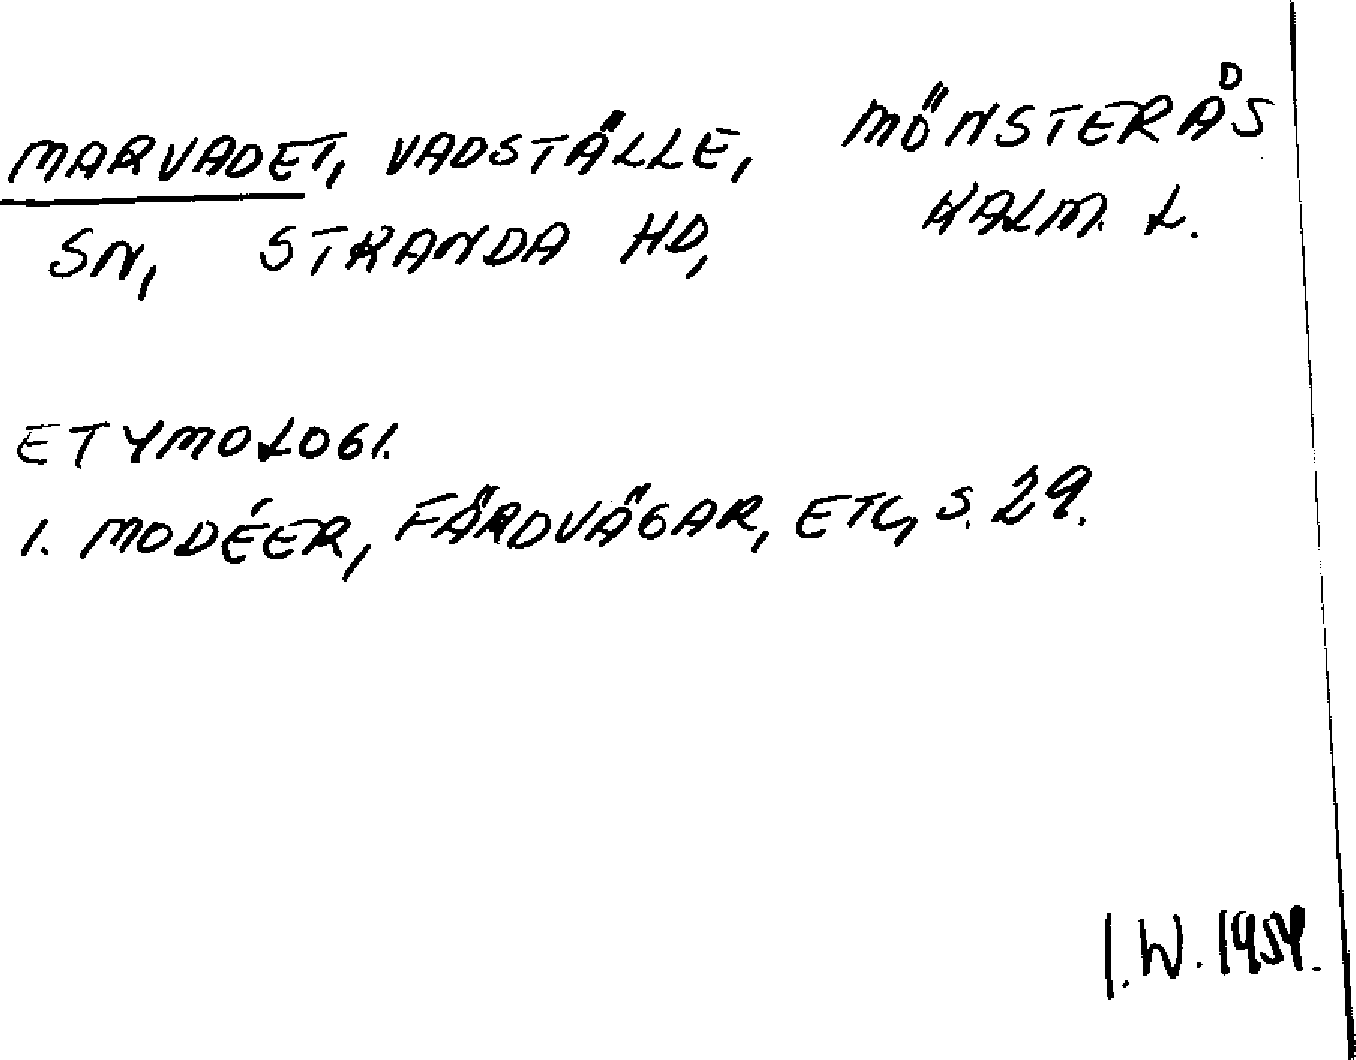 MARVADET, VADSTÄLLE, MÖNSTERÅS
SN, STRANDA HD, KALM. L.
ETYMOLOGI.
1. MODÉER, FÄRDVÄGAR, ETC, S. 29.
I.W. 1954.